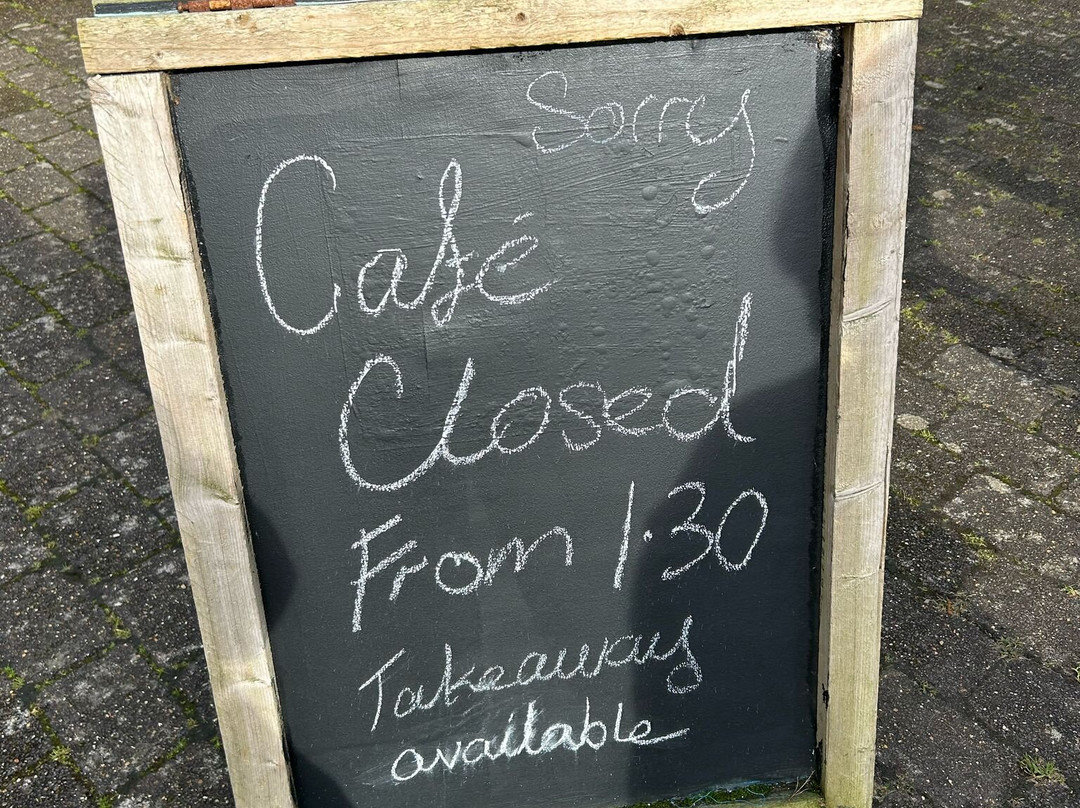 Sorry
Café
Closed
From 1.30
Takeaways
available